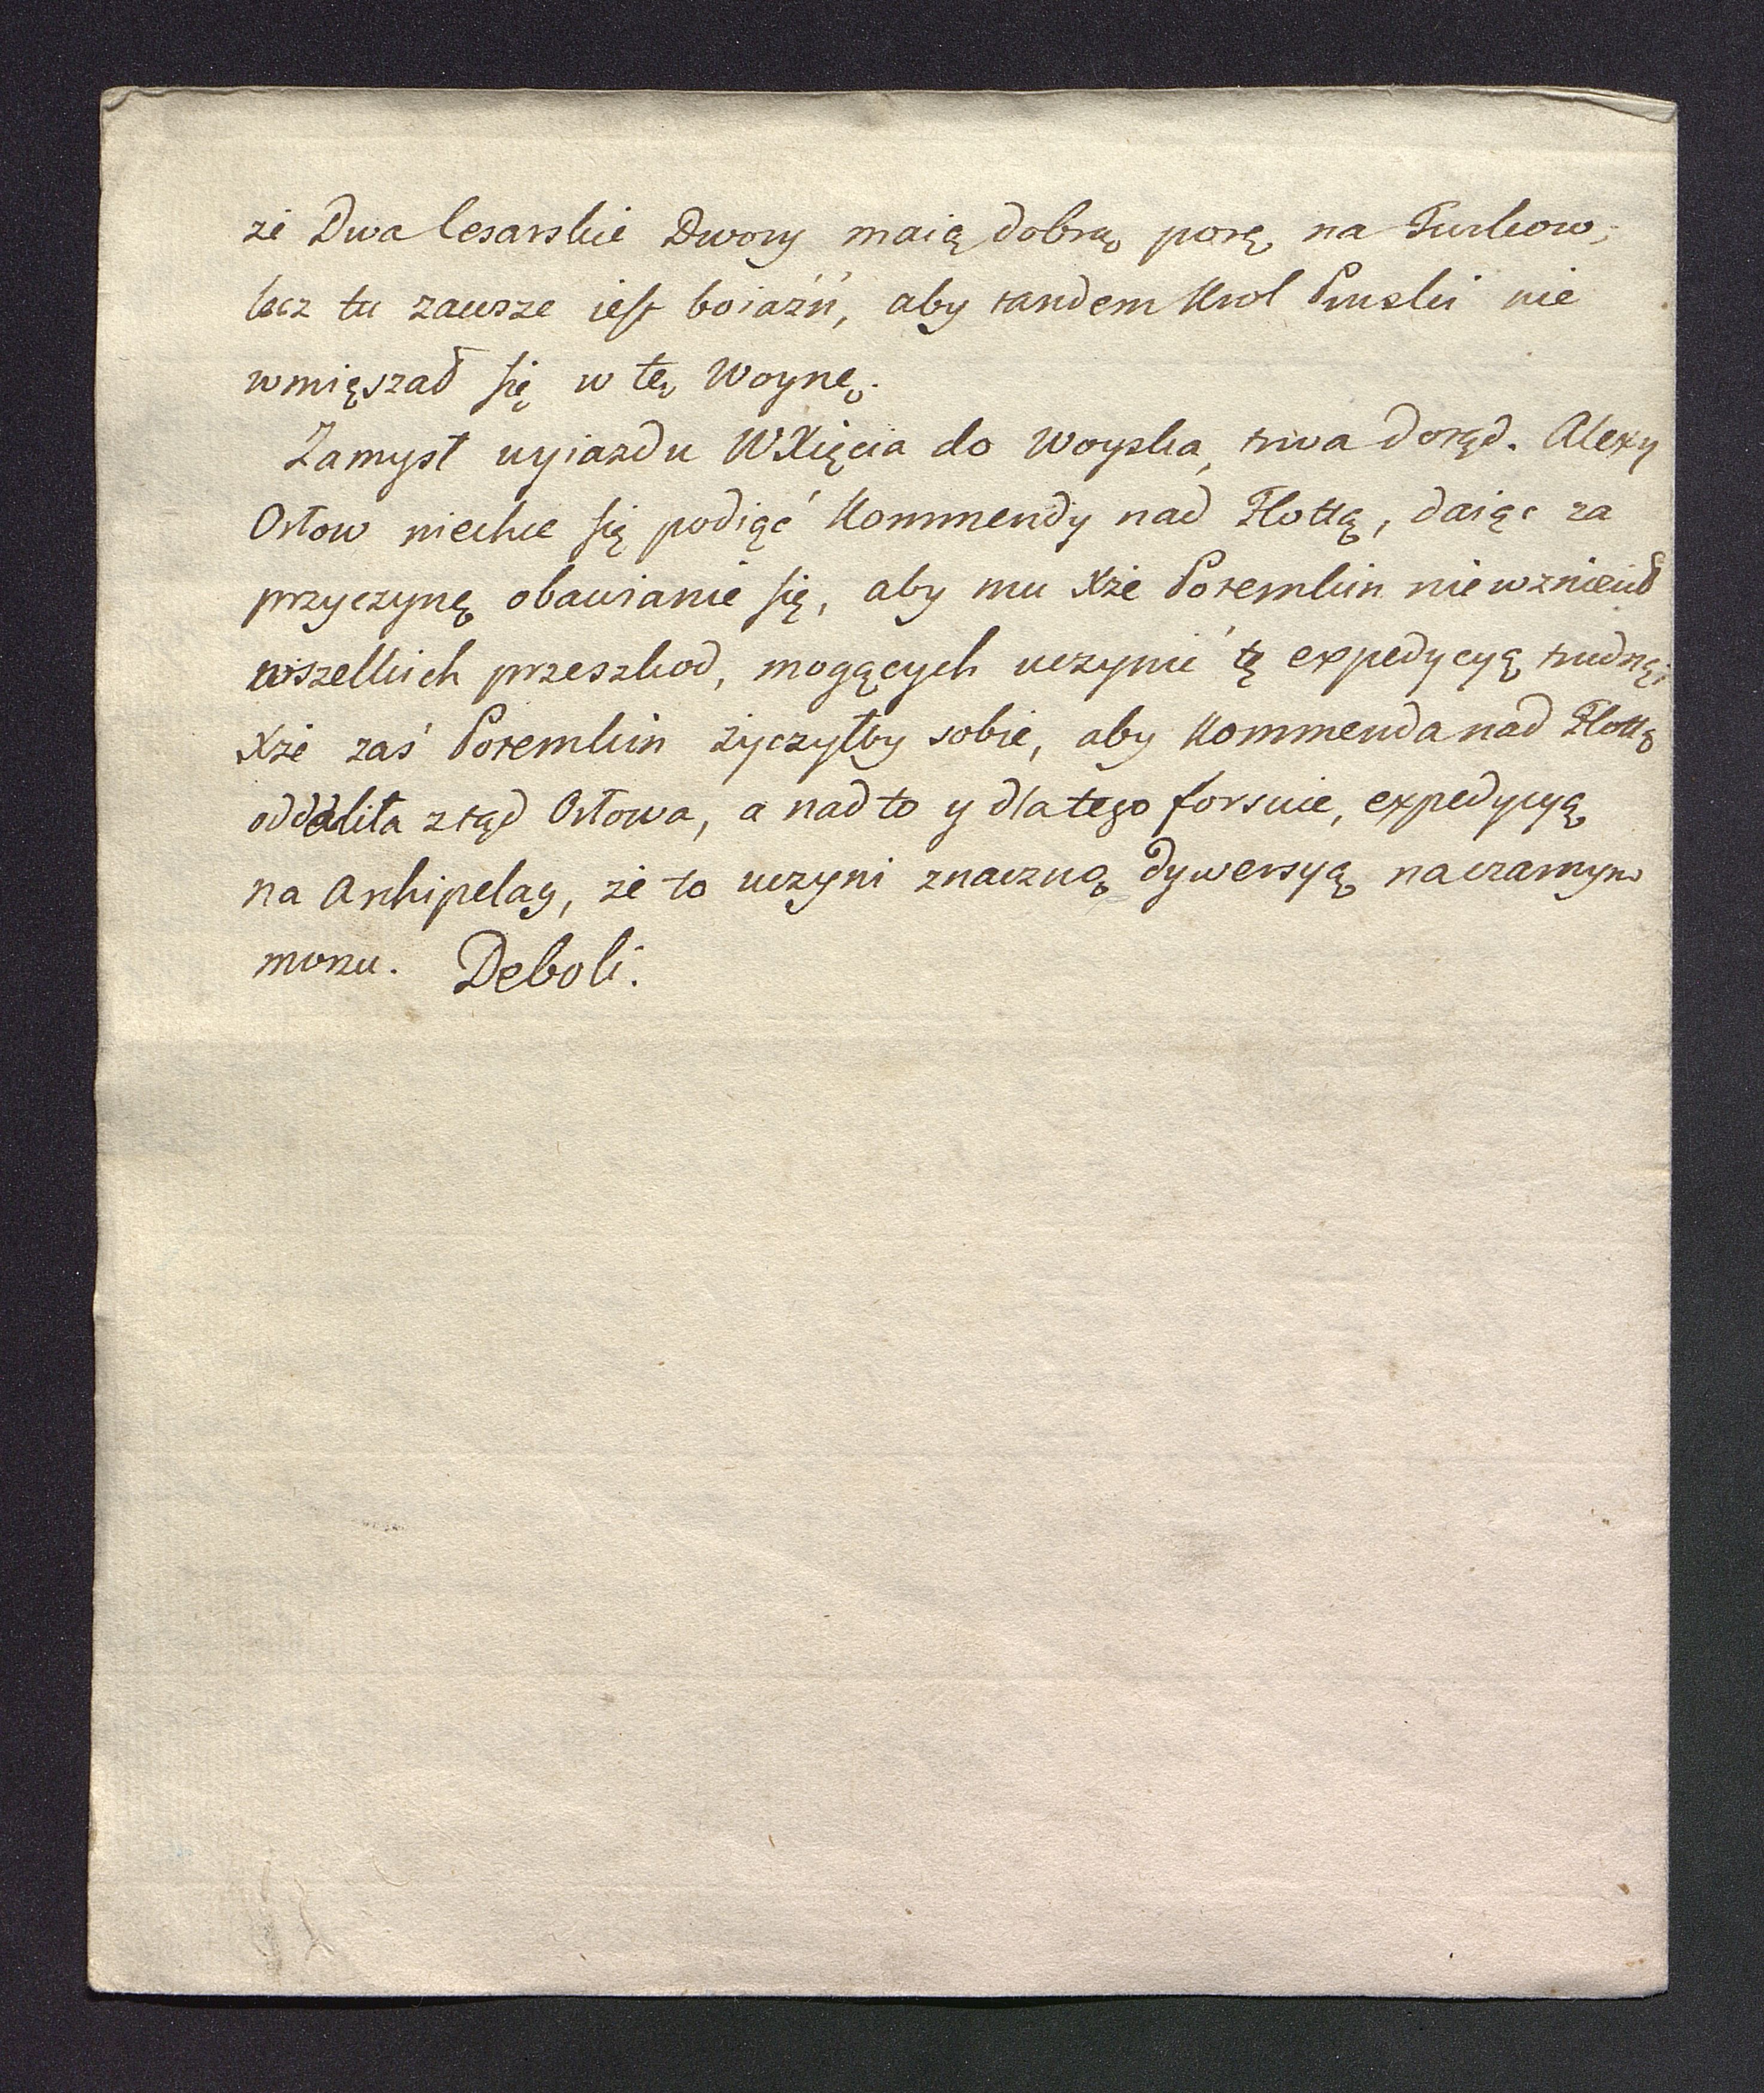 że Dwa Cesarskie Dwory maią dobrą porę na Turkow;
lecz tu zawsze iest boiaźń, aby tandem Krol Pruski nie
wmięszał się w tę Woynę.
Zamysł wyiazdu WXięcia do Woyska, trwa dotąd. Alexy
Orłow niechce się podiąć Kommendy nad Flottą, daiąc za
przyczynę obawianie się, aby mu Xże Potemkin niewzniecił
wszelkich przeszkod, mogących uczynić tę expedycyą trudną;
Xże zaś Potemkin życzyłby sobie, aby Kommenda nad Flottą
oddaliła ztąd Orłowa, a nad to y dla tego forsuie, expedycyą
na Archipelag, że to uczyni znaczną dywersyą na czarnym
morzu. Deboli.